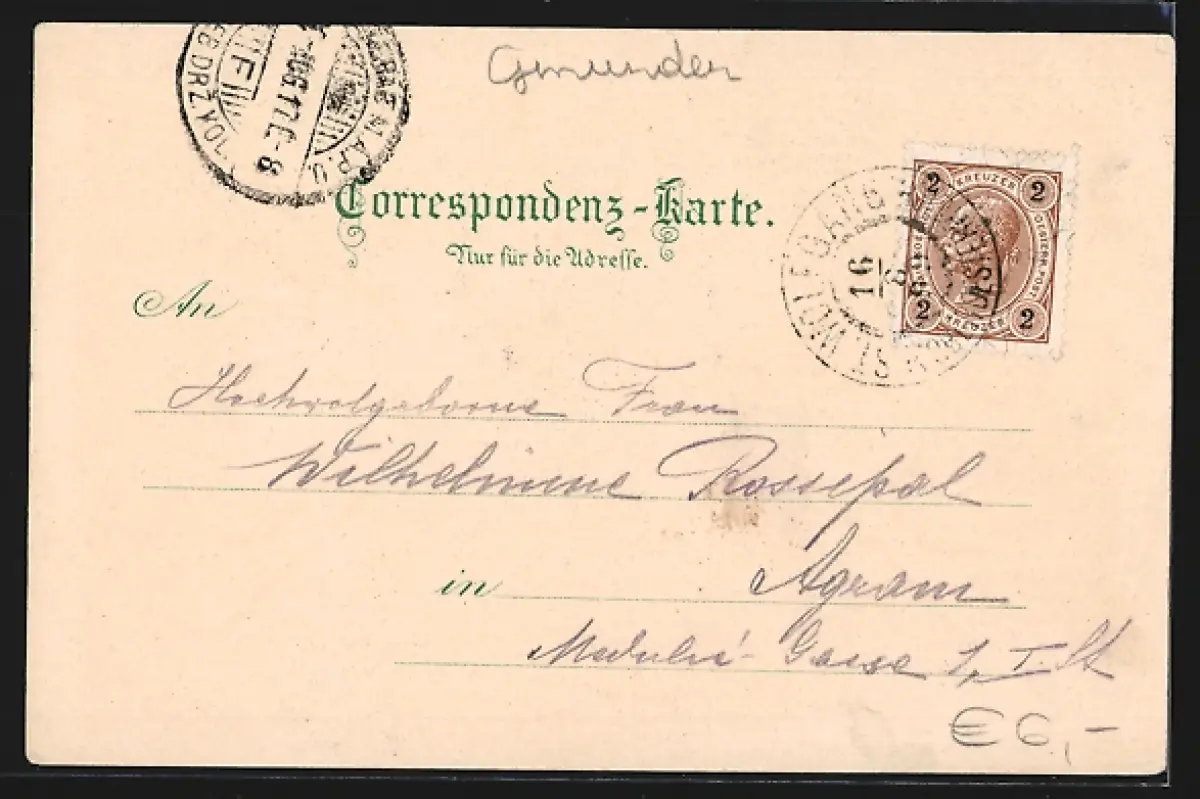 Gmunden
Correspondenz-Karte.
Nur für die Adresse.
An
Hochwolgeborne Frau
Wilhelmine Rossepal
in Agram
Medulić-Gasse 1, I St
€6,-
2 KREUZER 2
2 KREUZER 2
ST. WOLFGANG
16
8